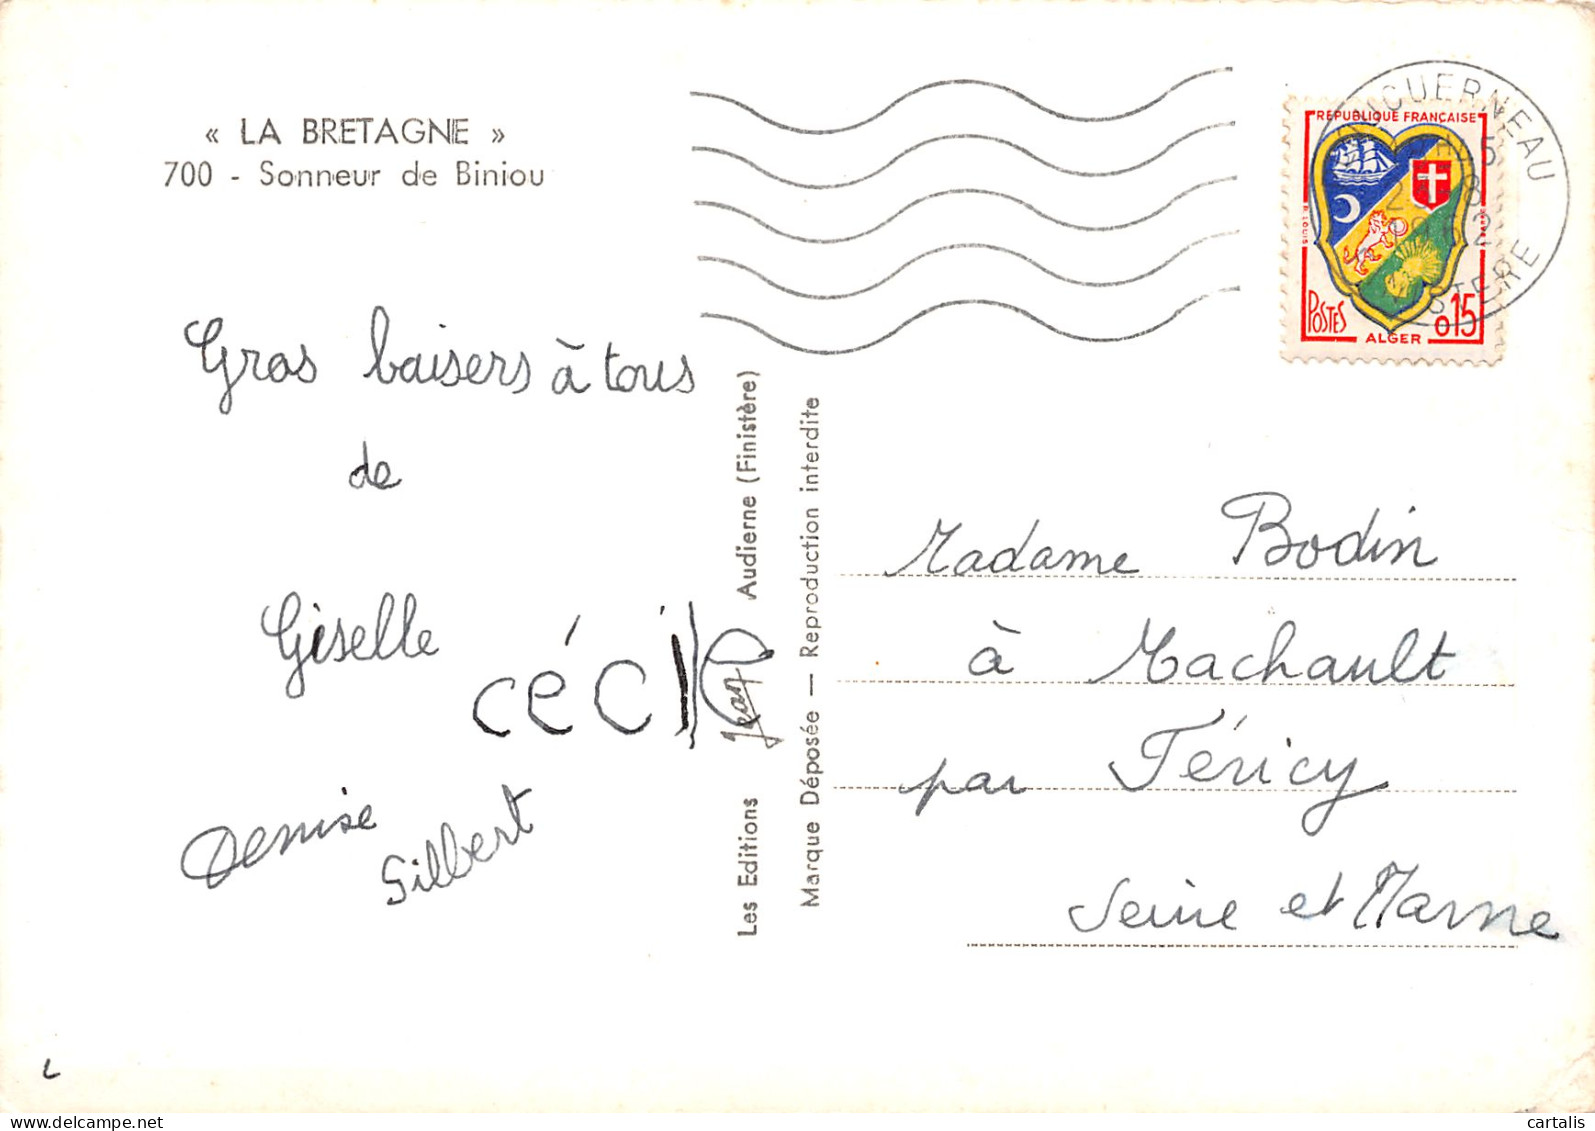 « LA BRETAGNE »
700 - Sonneur de Biniou
Gras baisers à tous
de
Giselle
CÉCILE
Denise
Gilbert
Les Editions Jean Audierne (Finistère)
Marque Déposée — Reproduction interdite
RÉPUBLIQUE FRANÇAISE
POSTES
0,15
ALGER
PLOUGUERNEAU
FINISTERE
Madame Bodin
à Machault
par Féricy
Seine et Marne
cartalis